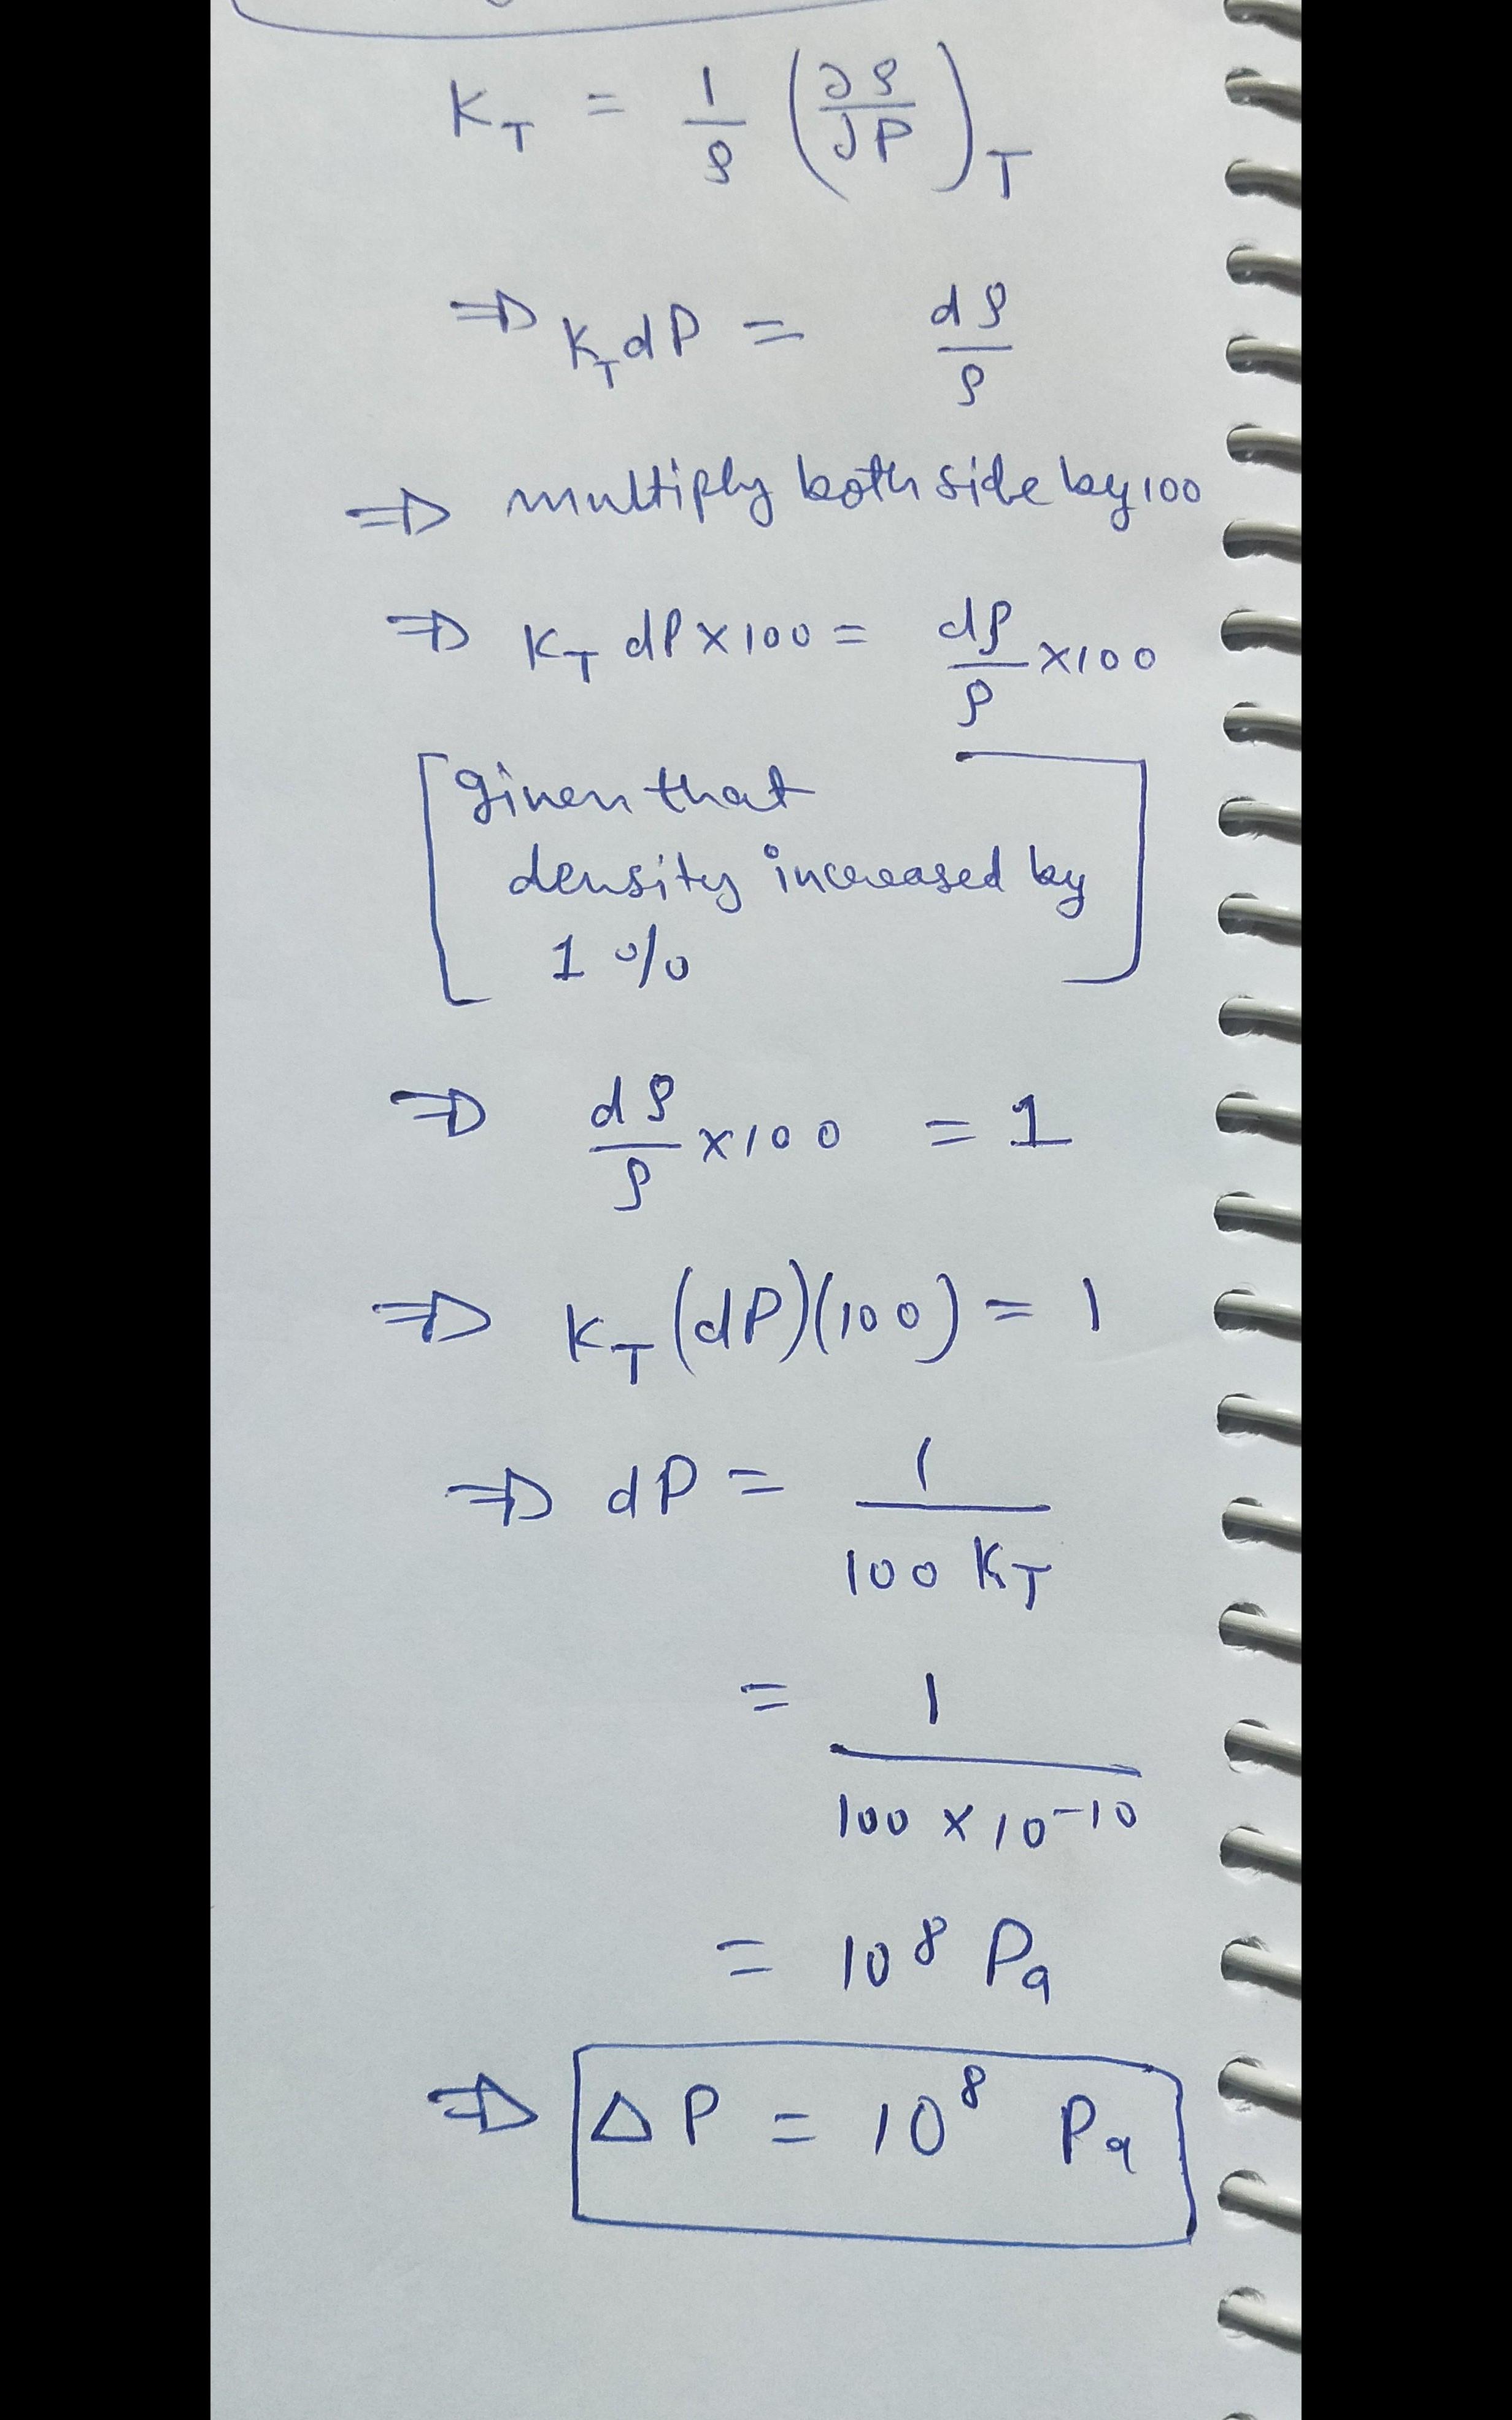 K_T = 1/ρ (∂ρ/∂P)_T
⇒ K_T dP = dρ/ρ
⇒ multiply both side by 100
⇒ K_T dP × 100 = dρ/ρ × 100
[given that
density increased by
1 %]
⇒ dρ/ρ × 100 = 1
⇒ K_T (dP)(100) = 1
⇒ dP = 1/(100 K_T)
= 1/(100 × 10⁻¹⁰)
= 10⁸ Pa
⇒ ΔP = 10⁸ Pa